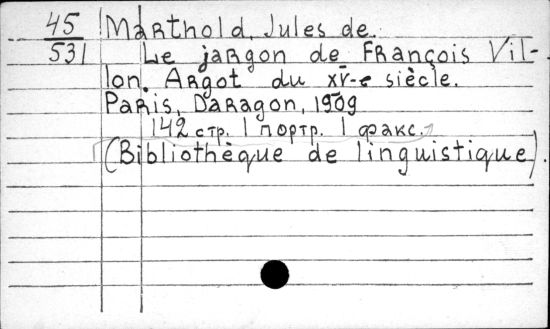 45 Marthold, Jules de.
531 Le jargon de François Vil-
lon. Argot du XV-e siècle.
Paris, Daragon, 1909
142 стр. 1 портр. 1 факс.
(Bibliothèque de linguistique).